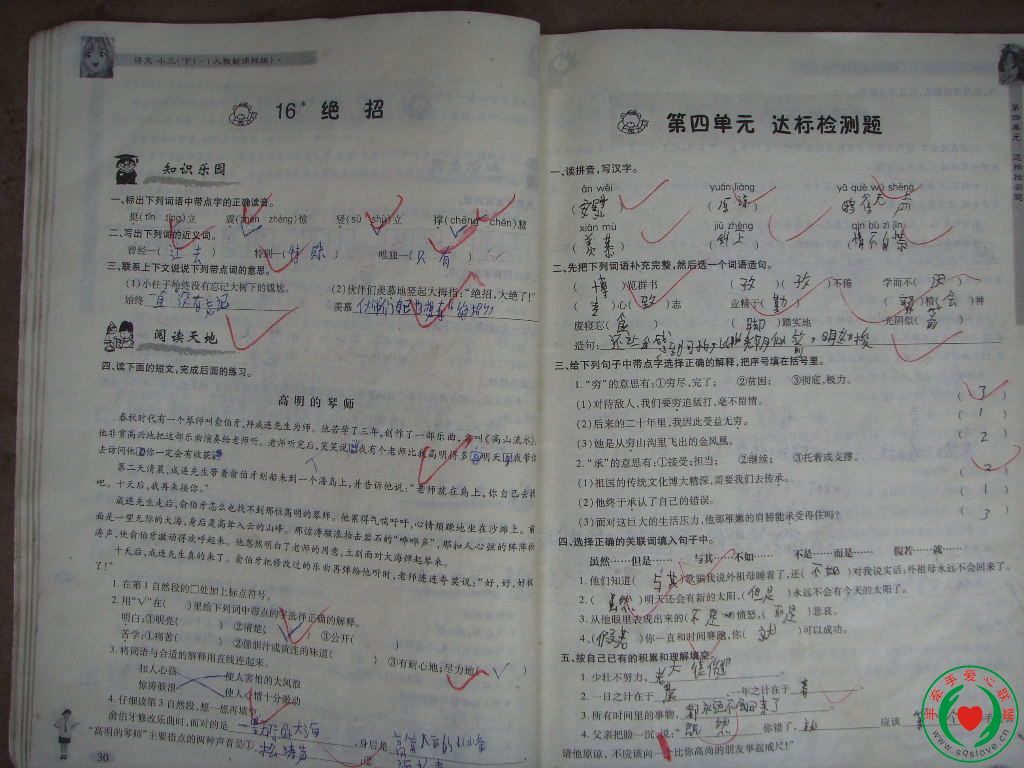 语文 小三(下)·(人教新课标版)·
16* 绝招
知识乐园
一、标出下列词语中带点字的正确读音。
挺(tǐn tǐng)立 震(zhèn zhèng)惊 竖(sù shù)立 撑(chēng chēn)腰
二、写出下列词的近义词。
曾经—( 过去 ) 特别—( 特殊 ) 唯独—( 只有 )
三、联系上下文说说下列带点词的意思。
(1)小柱子始终没有忘记大树下的尴尬。 (2)伙伴们羡慕地竖起大拇指:“绝招,大绝了!”
始终 一直没有忘记 羡慕
阅读天地
四、读下面的短文,完成后面的练习。
高明的琴师
春秋时代有一个琴师叫俞伯牙,拜成连先生为师。他苦学了三年,创作了一部乐曲,名叫《高山流水》。
他非常高兴地把这部乐曲演奏给老师听。老师听完后,笑笑说 我有个老师比我高明得多 明天 我带你
去访问他 你一定会有收获
第二天清晨,成连先生带着俞伯牙划船来到一个海岛上,并告诉他说:“老师就在岛上,你自己去找
吧。十天后,我再来接你。”
成连先生走后,俞伯牙怎么也找不到那位高明的琴师。他累得气喘吁吁,心情烦躁地坐在沙滩上。前
面是一望无际的大海,身后是高耸入云的山峰。那惊涛骇浪拍击岩石的“哗哗声”,那扣人心弦的阵阵松
涛声,使俞伯牙激动得欢呼起来。他忽然明白了老师的用意,立刻面对大海弹起琴来。
十天后,成连先生真的来了。俞伯牙把修改过的乐曲再弹给他听时,老师连连夸奖说:“好,好,好极
了!”
1. 在第1自然段的□处加上标点符号。
2. 用“√”在( )里给下列词中带点的字选择正确的解释。
明白:①明亮( ) ②清楚( √ ) ③公开( )
苦学:①痛苦( ) ②像胆汁或黄连的味道( ) ③有耐心地;尽力地( √ )
3. 将词语与合适的解释用直线连起来。
扣人心弦 使人害怕的大风浪
惊涛骇浪 使人心情十分激动
4. 仔细读第3自然段,想一想再填空。
俞伯牙修改乐曲时,面对的是 一望无际的大海 ,身后是 高耸入云的山峰
“高明的琴师”主要指的两种声音是① 松涛声 ②
30
第四单元 达标检测题
一、读拼音,写汉字。
ān wèi yuán liàng yā què wú shēng
( 安慰 ) ( 原谅 ) ( 鸦雀无声 )
xiàn mù jiū zhèng qín bù zì jīn
( 羡慕 ) ( 纠正 ) ( 情不自禁 )
二、先把下列词语补充完整,然后选一个词语造句。
( 博 )览群书 ( 孜 )( 孜 )不倦 学而不( 厌 )
( 专 )心( 致 )志 业精于( 勤 ) ( 聚 )精( 会 )神
废寝忘( 食 ) ( 脚 )踏实地 光阴似( 箭 )
造句:
三、给下列句子中带点字选择正确的解释,把序号填在括号里。
1. “穷”的意思有:①穷尽,完了; ②贫困; ③彻底,极力。
(1)对待敌人,我们要穷追猛打,毫不留情。 ( 3 )
(2)后来的二十年里,我因此受益无穷。 ( 1 )
(3)她是从穷山沟里飞出的金凤凰。 ( 2 )
2. “承”的意思有:①接受;担当; ②继续; ③托着或支撑。
(1)祖国的传统文化博大精深,需要我们去传承。 ( 2 )
(2)他终于承认了自己的错误。 ( 1 )
(3)面对这巨大的生活压力,他那稚嫩的肩膀能承受得住吗? ( 3 )
四、选择正确的关联词填入句子中。
虽然……但是…… 与其……不如…… 不是……而是…… 假若……就……
1. 他们知道( 与其 )欺骗我说外祖母睡着了,还( 不如 )对我说实话:外祖母永远不会回来了。
2. ( 虽然 )明天还会有新的太阳,( 但是 )永远不会有今天的太阳了。
3. 从他眼里表现出来的( 不是 )愤怒,( 而是 )悲哀。
4. ( 假若 )你一直和时间赛跑,你( 就 )可以成功。
五、按自己已有的积累和理解填空。
1. 少壮不努力, 老大徒伤悲 。
2. 一日之计在于 晨 ,一年之计在于 春 。
3. 所有时间里的事物, 都永远不会回来了 。
4. 父亲把脸一沉,说:“ 既然 你错了, 就 应该
请他原谅,不应该向一个比你高尚的朋友举起戒尺!”
第四单元 达标检测题
手至手爱心联盟
www.sqslove.cn